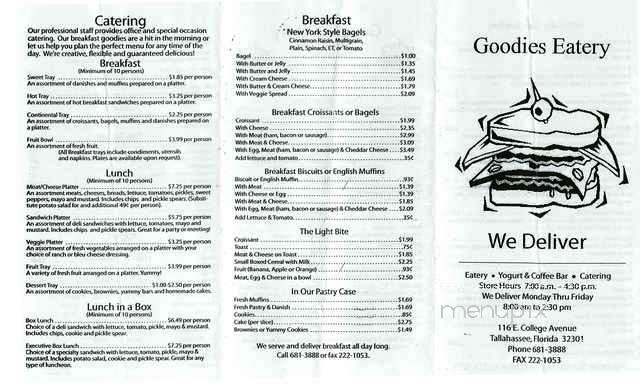 Catering
Our professional staff provides office and special occasion
catering. Our breakfast goodies are a hit in the morning or
let us help you plan the perfect menu for any time of the
day. We're creative, flexible and guaranteed delicious!
Breakfast
(Minimum of 10 persons)
Sweet Tray $1.85 per person
An assortment of danishes and muffins prepared on a platter.
Hot Tray $3.25 per person
An assortment of hot breakfast sandwiches prepared on a platter.
Continental Tray $2.25 per person
An assortment of croissants, bagels, muffins and danishes prepared on
a platter.
Fruit Bowl $3.99 per person
An assortment of fresh fruit.
(All Breakfast trays include condiments, utensils
and napkins. Plates are available upon request).
Lunch
(Minimum of 10 persons)
Meat/Cheese Platter $7.25 per person
An assortment meats, cheeses, breads, lettuce, tomatoes, pickles, sweet
peppers, mayo and mustard. Includes chips and pickle spears. (Substi-
tute potato salad for and additional 49¢ per person).
Sandwich Platter $5.75 per person
An assortment of deli sandwiches with lettuce, tomatoes, mayo and
mustard. Includes chips and pickle spears. Great for a party or meeting!
Veggie Platter $3.25 per person
An assortment of fresh vegetables arranged on a platter with your
choice of ranch or bleu cheese dressing.
Fruit Tray $3.99 per person
A variety of fresh fruit arranged on a platter. Yummy!
Dessert Tray $1.00-$2.50 per person
An assortment of cookies, brownies, yummy bars and homemade cakes.
Lunch in a Box
(Minimum of 10 persons)
Box Lunch $6.49 per person
Choice of a deli sandwich with lettuce, tomato, pickle, mayo & mustard.
Includes chips, cookie and pickle spear.
Executive Box Lunch $7.25 per person
Choice of a specialty sandwich with lettuce, tomato, pickle, mayo &
mustard. Includes potato salad, cookie and pickle spear. Great for any
type of luncheon.
Breakfast
New York Style Bagels
Cinnamon Raisin, Multigrain,
Plain, Spinach, ET, or Tomato
Bagel $1.00
With Butter or Jelly $1.35
With Butter and Jelly $1.45
With Cream Cheese $1.69
With Butter & Cream Cheese $1.79
With Veggie Spread $2.09
Breakfast Croissants or Bagels
Croissant $1.99
With Cheese $2.35
With Meat (ham, bacon or sausage) $2.99
With Meat & Cheese $3.09
With Egg, Meat (ham, bacon or sausage) & Cheddar Cheese $3.49
Add lettuce and tomato .35¢
Breakfast Biscuits or English Muffins
Biscuit or English Muffin .93¢
With Meat $1.39
With Cheese or Egg $1.39
With Meat & Cheese $1.85
With Egg, Meat (ham, bacon or sausage) & Cheddar Cheese $2.09
Add Lettuce & Tomato .35¢
The Light Bite
Croissant $1.99
Toast .75¢
Meat & Cheese on Toast $1.85
Small Boxed Cereal with Milk $2.25
Fruit (Banana, Apple or Orange) .93¢
Meat, Egg & Cheese in a bowl $2.50
In Our Pastry Case
Fresh Muffins $1.69
Fresh Pastry & Danish $1.69
Cookies .85¢
Cake (per slice) $2.75
Brownies or Yummy Cookies $1.49
We serve and deliver breakfast all day long.
Call 681-3888 or fax 222-1053.
Goodies Eatery
We Deliver
Eatery • Yogurt & Coffee Bar • Catering
Store Hours 7:00 a.m. - 4:30 p.m.
We Deliver Monday Thru Friday
8:00 am to 2:30 pm
menupix
116 E. College Avenue
Tallahassee, Florida 32301
Phone 681-3888
FAX 222-1053